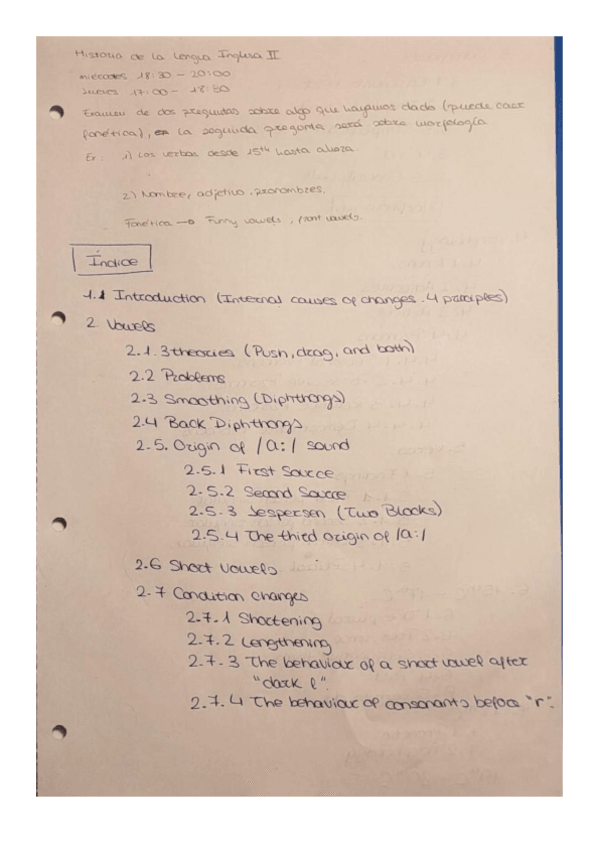 Historia de la Lengua Inglesa II
miércoles 18:30 - 20:00
Jueves 17:00 - 18:30
Examen de dos preguntas sobre algo que hayamos dado (puede caer
fonética), en la segunda pregunta será sobre morfología
Ex: 1) Los verbos desde 15th hasta ahora.
2) Nombre, adjetivo, pronombres.
Fonética → Funny vowels, front vowels.
Índice
1.1 Introduction (Internal causes of changes. 4 principles)
2 Vowels
2.1. 3 theories (Push, drag, and both)
2.2 Problems
2.3 Smoothing (Diphthongs)
2.4 Back Diphthongs
2.5. Origin of /a:/ sound
2.5.1 First Source
2.5.2 Second Source
2.5.3 Jespersen (Two Blocks)
2.5.4 The third origin of /a:/
2.6 Short vowels
2.7 Condition changes
2.7.1 Shortening
2.7.2 Lengthening
2.7.3 The behaviour of a short vowel after
"dark l".
2.7.4 The behaviour of consonants before "r".